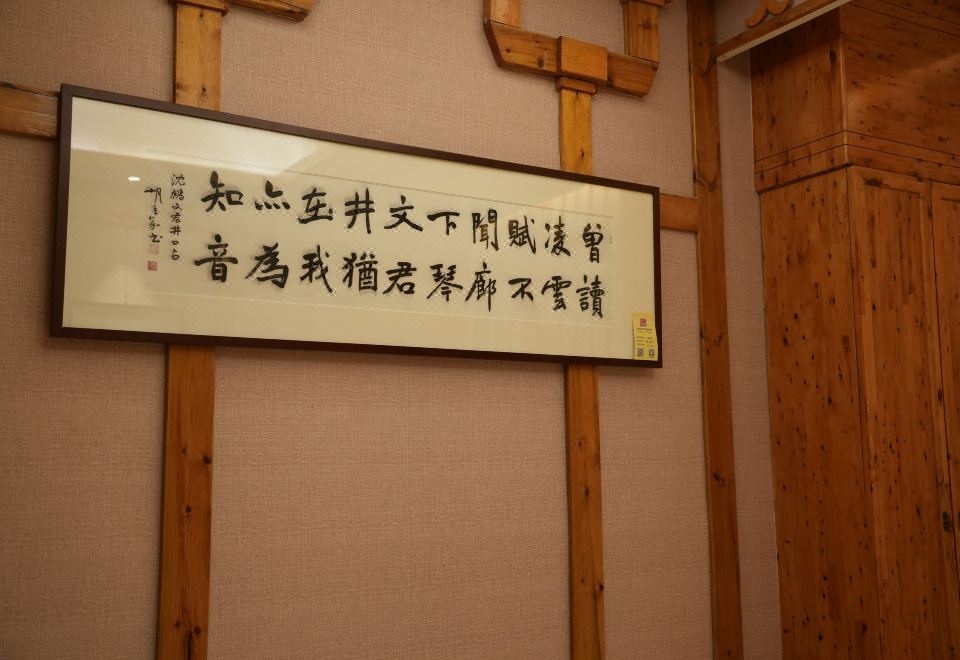 曾讀
凌雲
賦不
聞廊
下琴
文君
井猶
在我
亦為
知音
沈鵬文君井口占